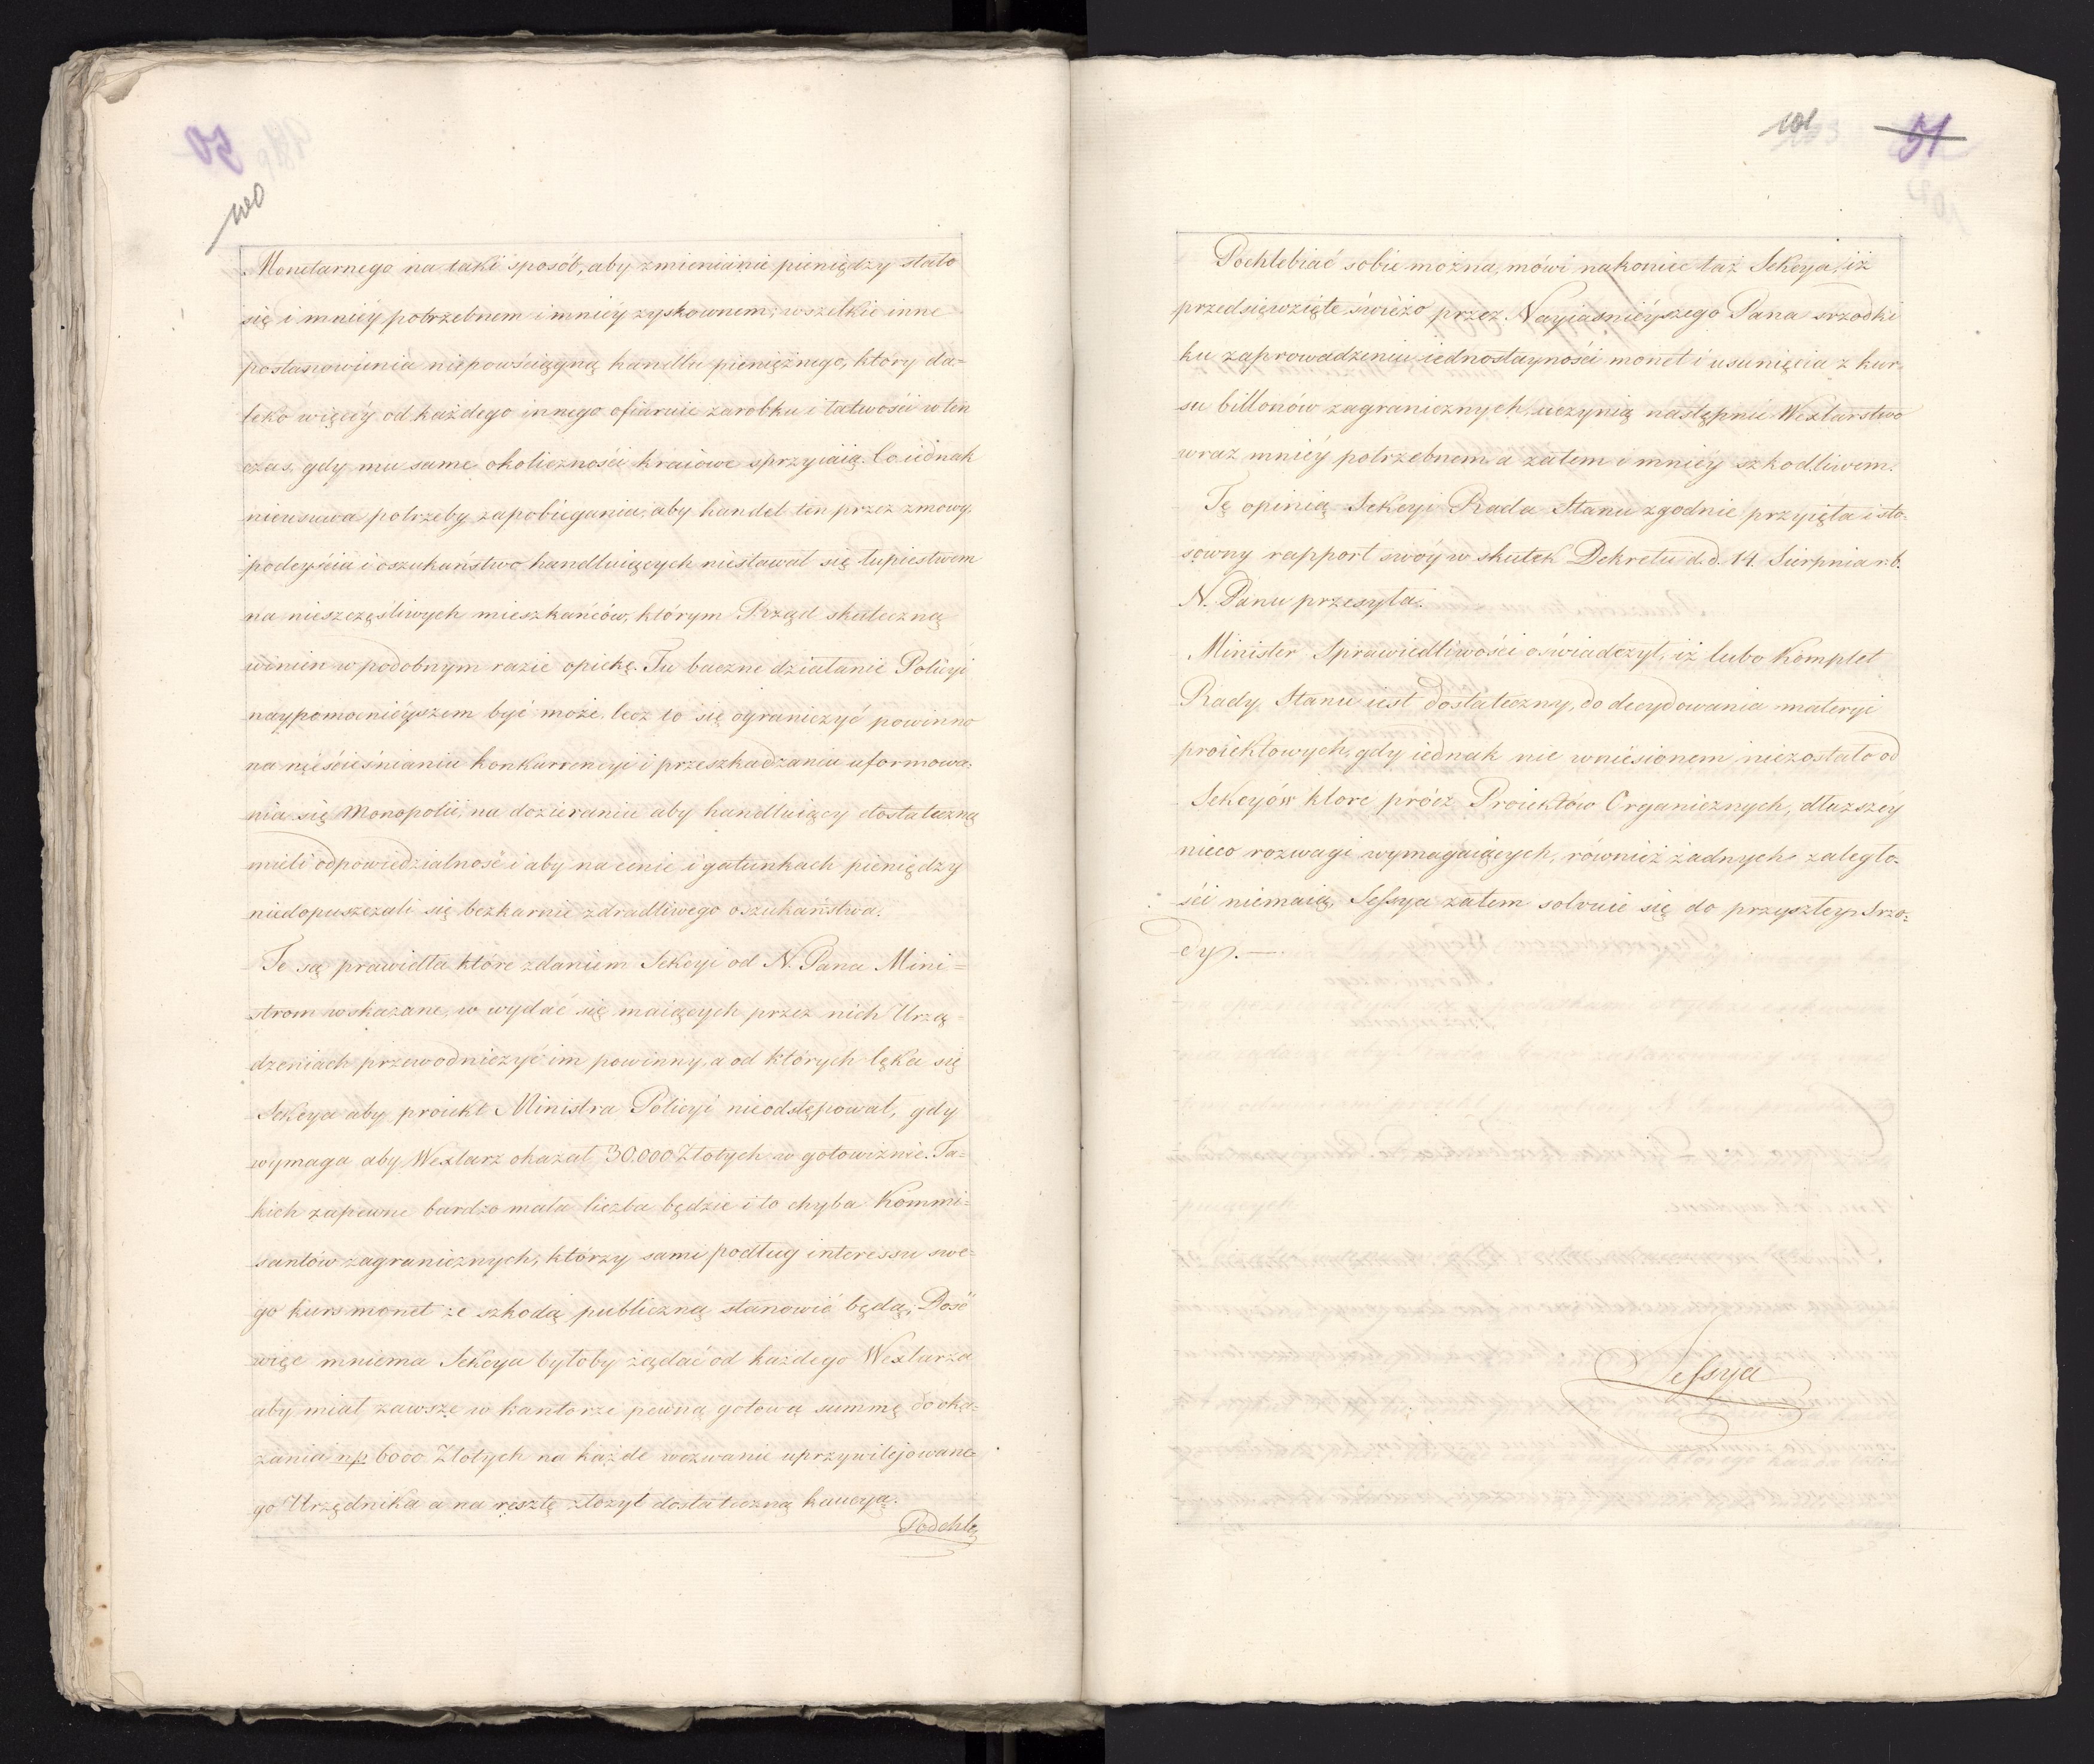 100
Monetarnego na taki sposób, aby zmienianie pieniędzy stało
się i mniéy potrzebnem i mniéy zyskownem; wszelkie inne
postanowienia niepowściągną handlu pieniężnego, który da=
leko więcéy od każdego innego ofiaruie zarobku i łatwości w ten
czas, gdy mu same okoliczności kraiowe sprzyiaią. Co iednak
nieusuwa potrzeby zapobiegania, aby handel ten przez zmowy,
podeyścia i oszukaństwo handluiących niestawał się łupiestwem
na nieszczęśliwych mieszkańców, którym Rząd skuteczną
winien w podobnym razie opiekę. Tu baczne działanie Policyi
naypomocnieyszem być może, lecz to się ograniczyć powinno
na nieścieśnianiu konkurrencyi i przeszkadzaniu uformowa=
nia się Monopolii, na dozieraniu aby handluiący dostateczną
mieli odpowiedzialność i aby na cenie i gatunkach pieniędzy
niedopuszczali się bezkarnie zdradliwego oszukaństwa.
Te są prawidła które zdaniem Sekcyi od N. Pana Mini=
strom wskazane, w wydać się maiących przez nich Urzą=
dzeniach przewodniczyć im powinny, a od których lęka się
Sekcya aby proiekt Ministra Policyi nieodstępował, gdy
wymaga aby Wexlarz okazał 30.000 Złotych w gotowiźnie. Ta=
kich zapewne bardzo mała liczba będzie i to chyba Kommi=
santów zagranicznych, którzy sami podług interessu swe=
go kurs monet ze szkodą publiczną stanowić będą; Dość
więc mniema Sekcya byłoby żądać od każdego Wexlarza
aby miał zawsze w kantorze pewną gotową summę do oka=
zania np 6000 Złotych na każde wezwanie uprzywilejowane=
go Urzędnika a na resztę złożył dostateczną kaucyą.
Pochle
101
51
Pochlebiać sobie można, mówi nakoniec taż Sekcya, iż
przedsięwzięte świéżo przez Nayiaśnieyszego Pana srzodki
ku zaprowadzeniu iednostayności monet i usunięcia z kur=
su billonów zagranicznych, uczynią następnie Wexlarstwo
wraz mniéy potrzebnem a zatem i mniéy szkodliwem.
Tę opinią Sekcyi Rada Stanu zgodnie przyięła i sto=
sowny rapport swóy w skutek Dekretu d.d. 14. Sierpnia r.b.
N. Panu przesyła.
Minister Sprawiedliwości oświadczył, iż lubo Komplet
Rady Stanu iest dostateczny, do decydowania materyi
proiektowych, gdy iednak nic wniesionem niezostało od
Sekcyów które prócz Proiektów Organicznych, dłuższéy
nieco rozwagi wymagaiących, również żadnych zaległo=
ści niemaią, Sessya zatem solwuie się do przyszłey Srzo=
dy. —
Sessya